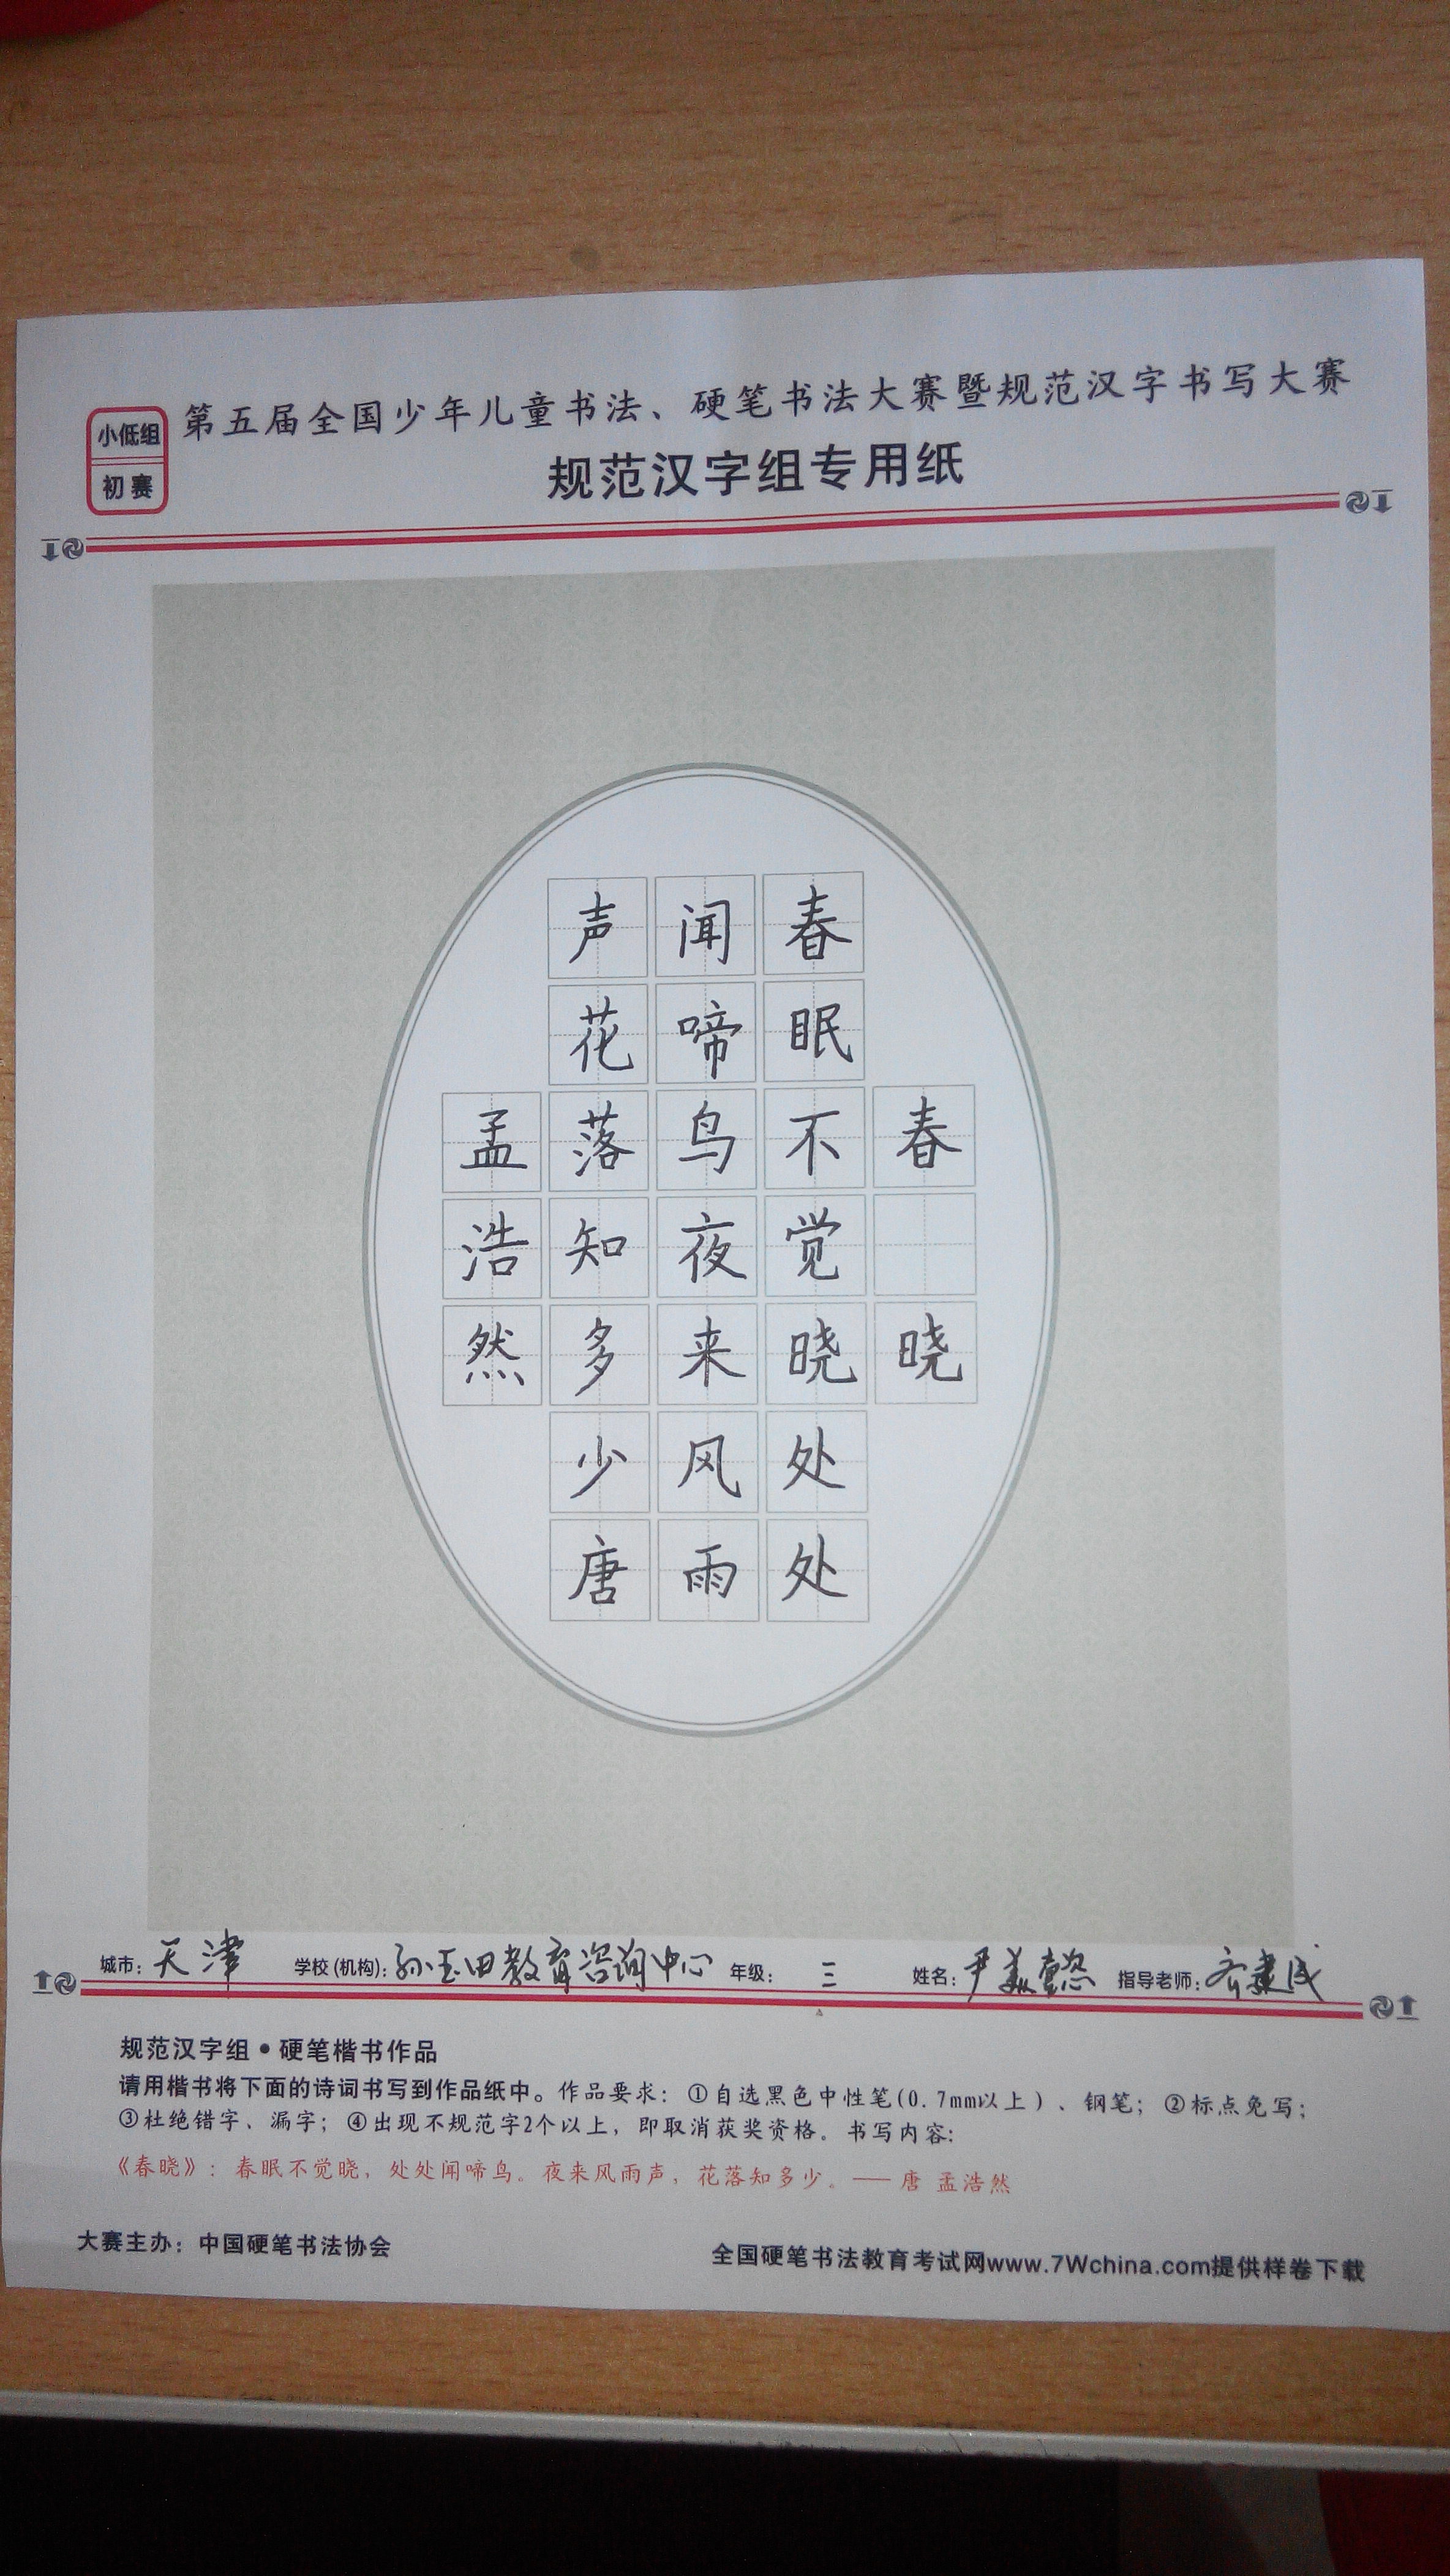 小低组
初赛
第五届全国少年儿童书法、硬笔书法大赛暨规范汉字书写大赛
规范汉字组专用纸
春晓
春眠不觉晓处处
闻啼鸟夜来风雨
声花落知多少唐
孟浩然
城市：天津 学校(机构)：孙玉田教育咨询中心 年级：三 姓名：尹美懿 指导老师：齐建民
规范汉字组•硬笔楷书作品
请用楷书将下面的诗词书写到作品纸中。作品要求：①自选黑色中性笔(0.7mm以上)、钢笔；②标点免写；
③杜绝错字、漏字；④出现不规范字2个以上，即取消获奖资格。书写内容：
《春晓》：春眠不觉晓，处处闻啼鸟。夜来风雨声，花落知多少。——唐 孟浩然
大赛主办：中国硬笔书法协会
全国硬笔书法教育考试网www.7Wchina.com提供样卷下载